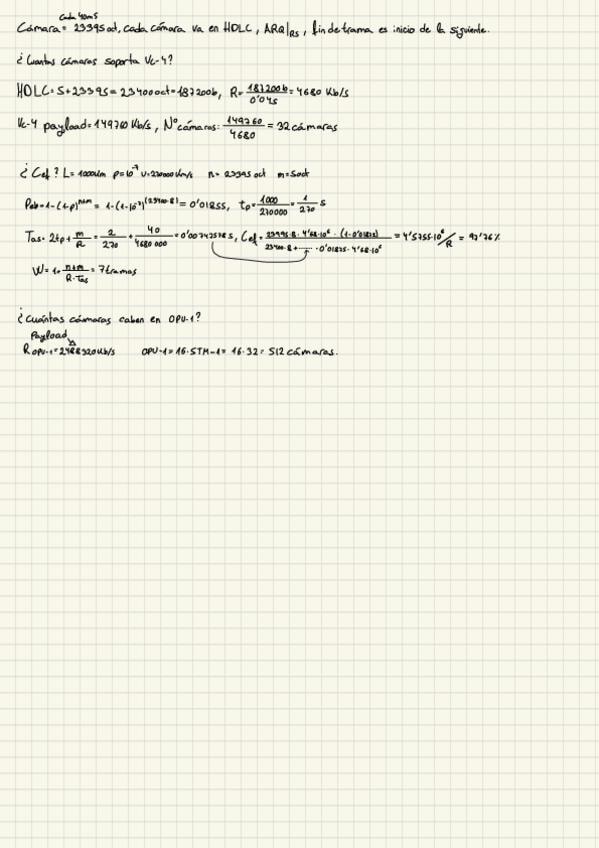 cada 40ms
Cámara = 23395 oct, cada cámara va en HDLC, ARQ|RS, fin de trama es inicio de la siguiente.
¿Cuantas cámaras soporta VC-4?
HDLC = 5+23395 = 23400 oct = 187200b, R = 187200b / 0'04s = 4680 Kb/s
VC-4 payload = 149760 Kb/s, Nº cámaras: 149760 / 4680 = 32 cámaras
¿Cef? L = 1000km p=10⁻⁷ v=270000 km/s n = 23395 oct m = 5 oct
Peb = 1-(1-p)ⁿ⁺ᵐ = 1-(1-10⁻⁷)^(23400·8) = 0'01855, tp = 1000 / 270000 = 1 / 270 s
Tas = 2tp + m / R = 2 / 270 + 40 / 4680 000 = 0'00742 s, Cef = 23395·8·4'68·10⁶·(1-0'01855) / 23400·8+ ·0'01855·4'68·10⁶ = 4'5755·10⁶/R = 97'76%
W = 1+ n+m / R·Tas = 7 tramas
¿Cuántas cámaras caben en OPU-1?
Payload
R OPU-1 = 2488320 Kb/s OPU-1 = 16·STM-1 = 16·32 = 512 cámaras.